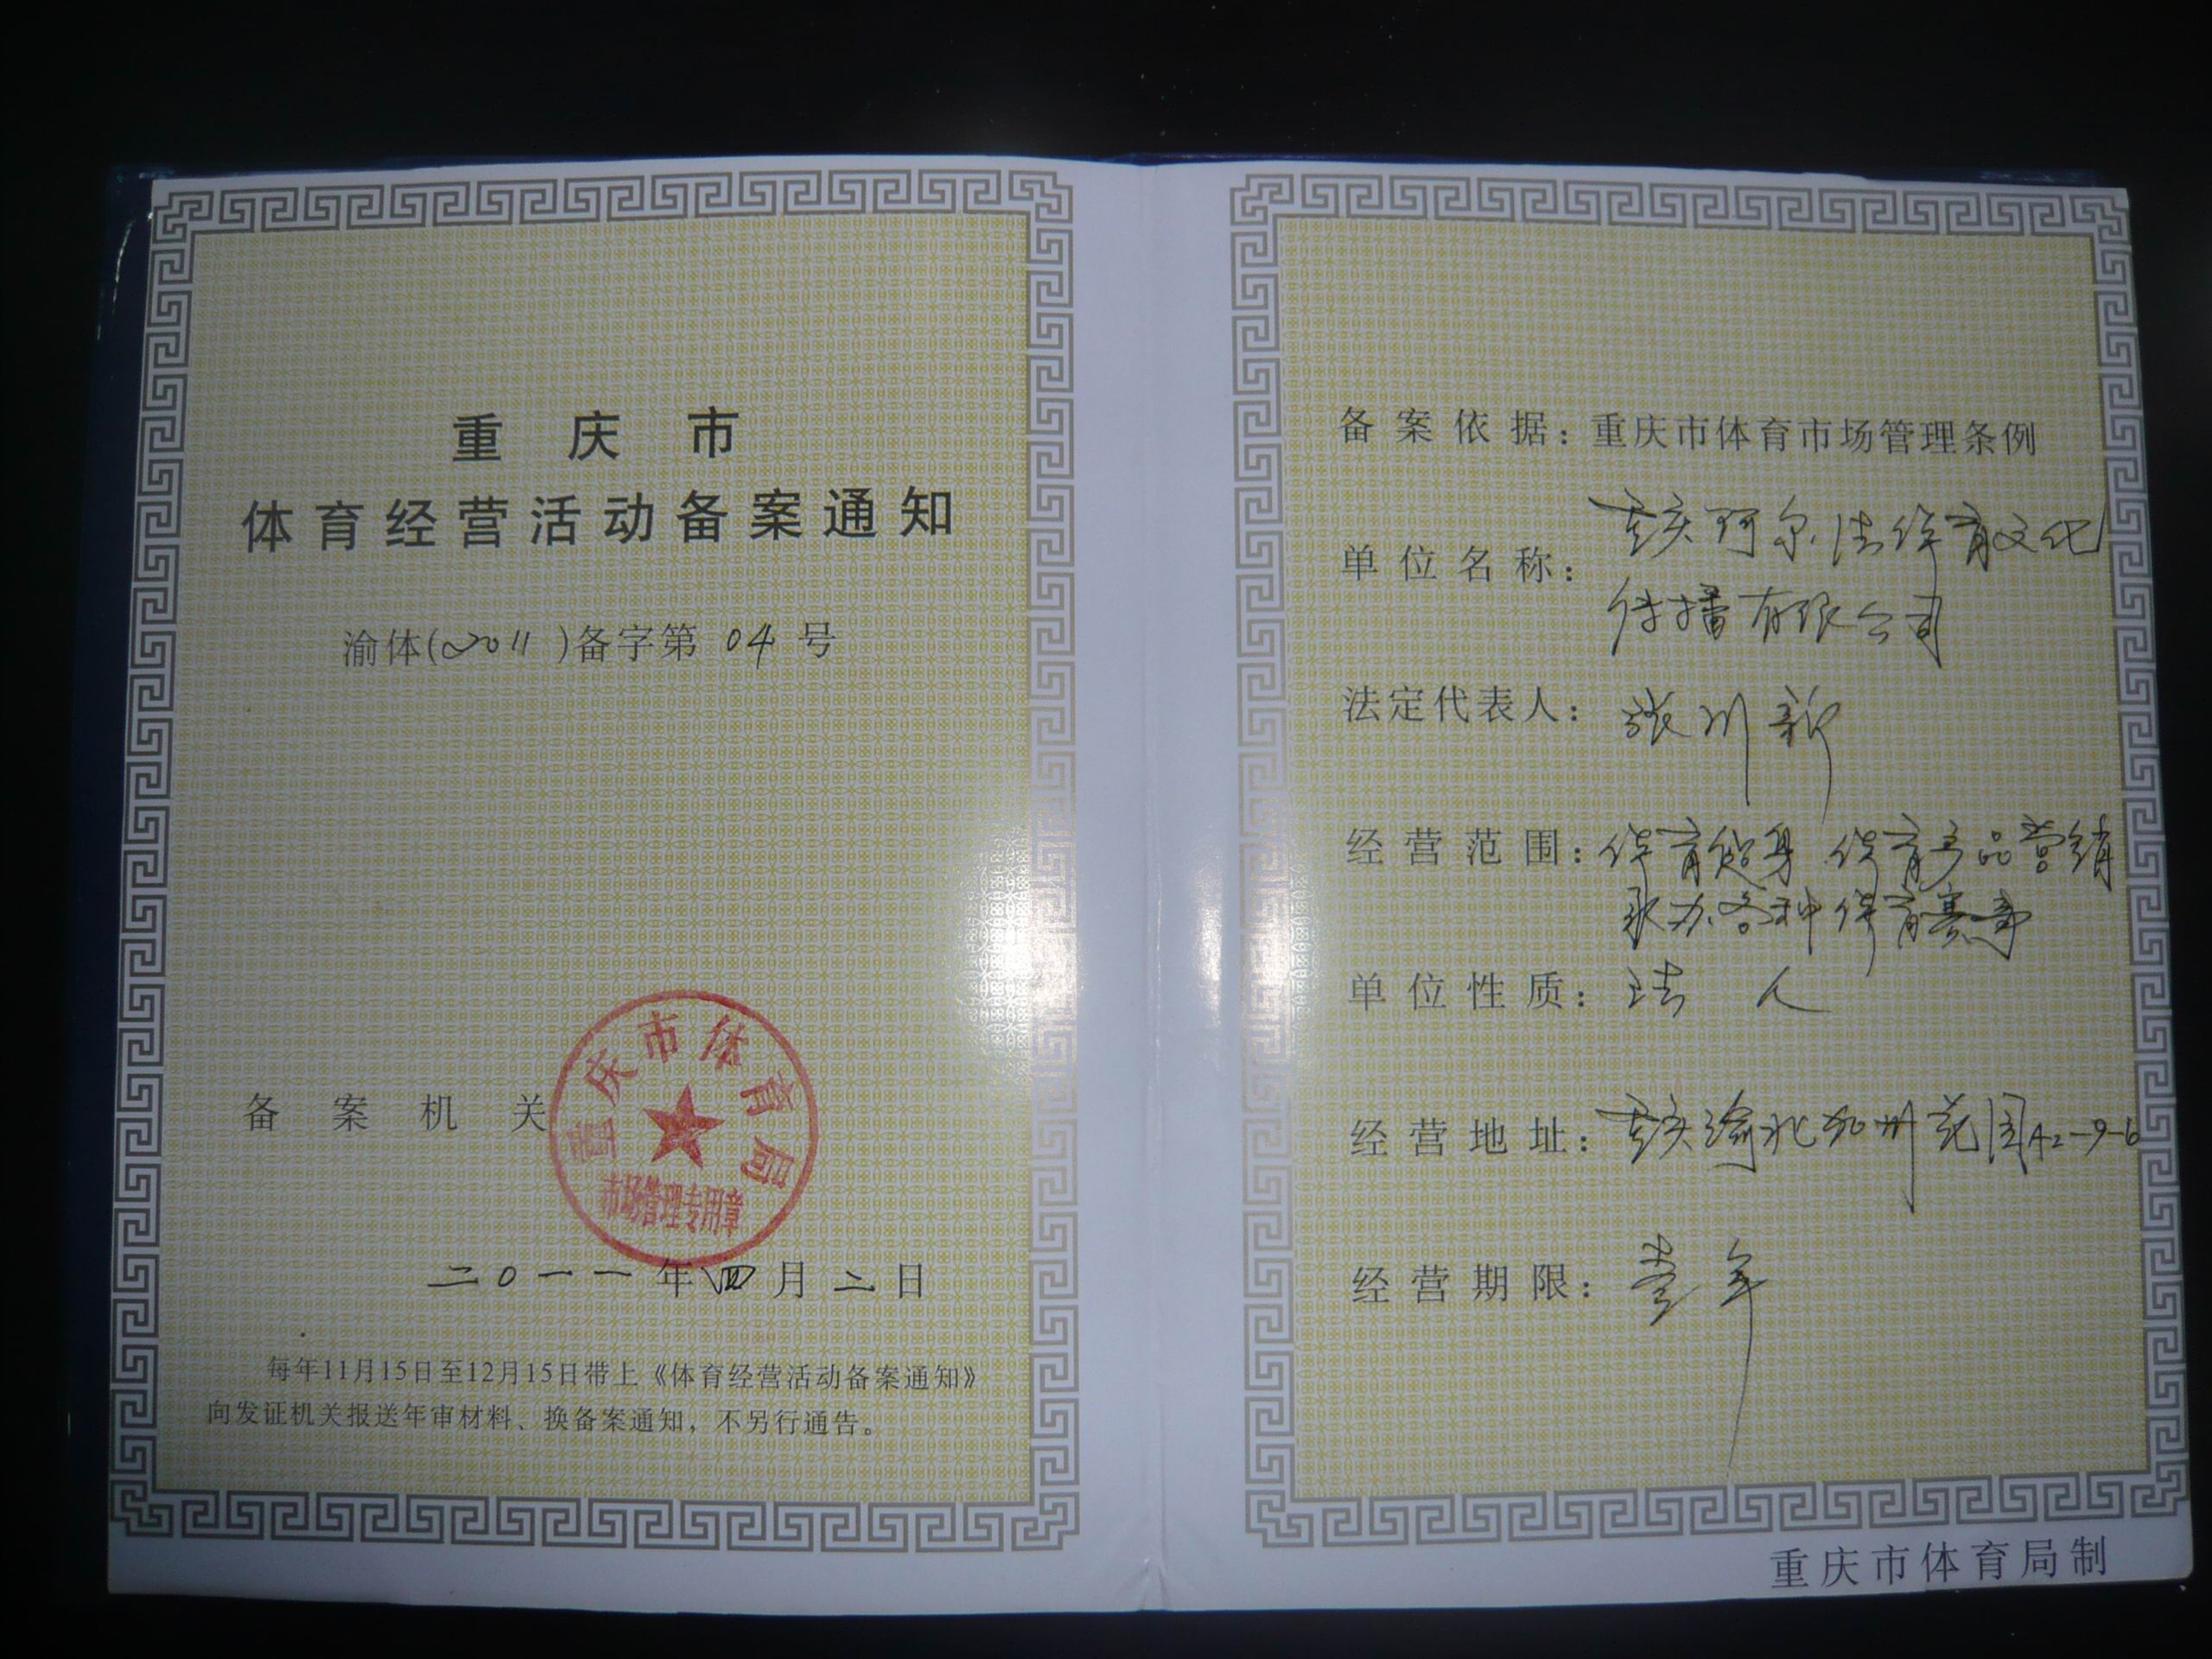 重庆市
体育经营活动备案通知
渝体(2011)备字第 04 号
备案机关
重庆市体育局
市场管理专用章
二0一一年四月二日
每年11月15日至12月15日带上《体育经营活动备案通知》
向发证机关报送年审材料、换备案通知，不另行通告。
备案依据：重庆市体育市场管理条例
单位名称：重庆阿尔法体育文化
传播有限公司
法定代表人：张川新
经营范围：体育健身 体育产品营销
承办各种体育赛事
单位性质：法人
经营地址：重庆渝北加州花园A2-9-6
经营期限：壹年
重庆市体育局制